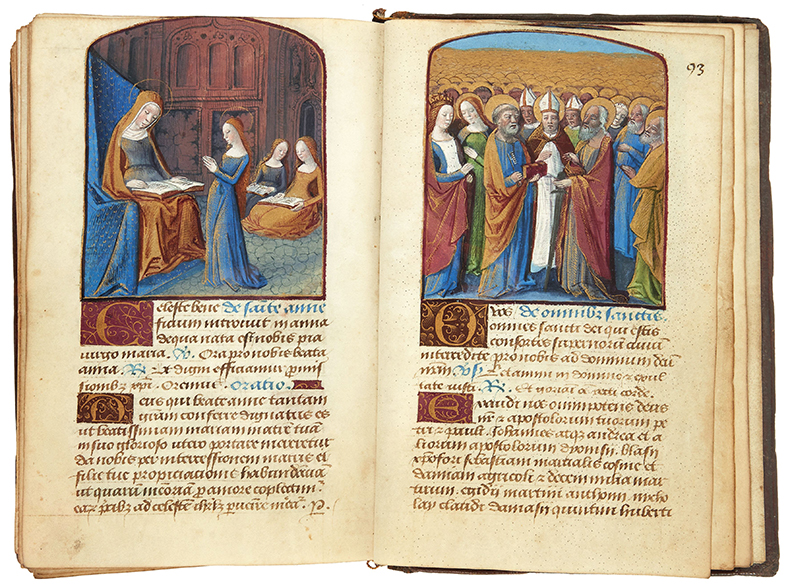 Celeste bene de saīte anne
ficium introivit in anna
de qua nata est nobis pia
virgo maria. V. Ora pro nobis beata
anna. R. Ut digni efficiamur
xpi. Oremus. Oratio.
Deus qui beate anne tantam
gratiam conferre dignatus es
ut beatissimam mariam matrē tuā
in suo glorioso utero portare mereretur
da nobis per intercessionem matris et
filie tue propiciationis habundāciā
ut quarū
ad celestem
93
de omnibꝫ sanctis.
omnes sancti dei qui estis
consortes supernorum civiū
intercedite pro nobis ad dominum deū
Letamini in domino et exul
tate iusti. R. Et
Exaudi nos omnipotens deus
et apostolorum tuorum pe
tri et pauli. Johannes atque andree et a
liorum apostolorum dionisii. blasii
xpofori sebastiani martialis cosme et
damiani agricoli et decem milia mar
tirum. egidii martini anthonii nicho
lay claudii damasii quintini huberti